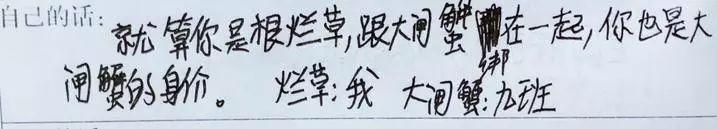 自己的话:
就算你是根烂草,跟大闸蟹绑在一起,你也是大
闸蟹的身价。 烂草:我 大闸蟹:九班